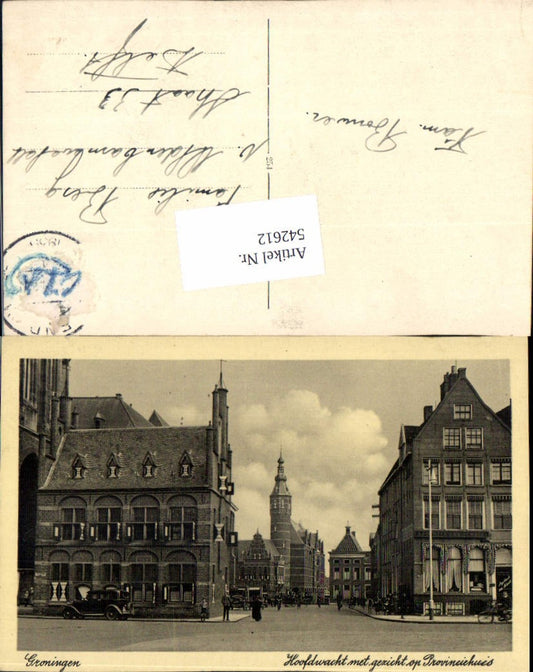 Familie Berg
v. Oldenbarnevelt
straat 33
Delft.
Fam. Bouwer.
Artikel Nr.
542612
Groningen
Hoofdwacht met gezicht op Provinciehuis